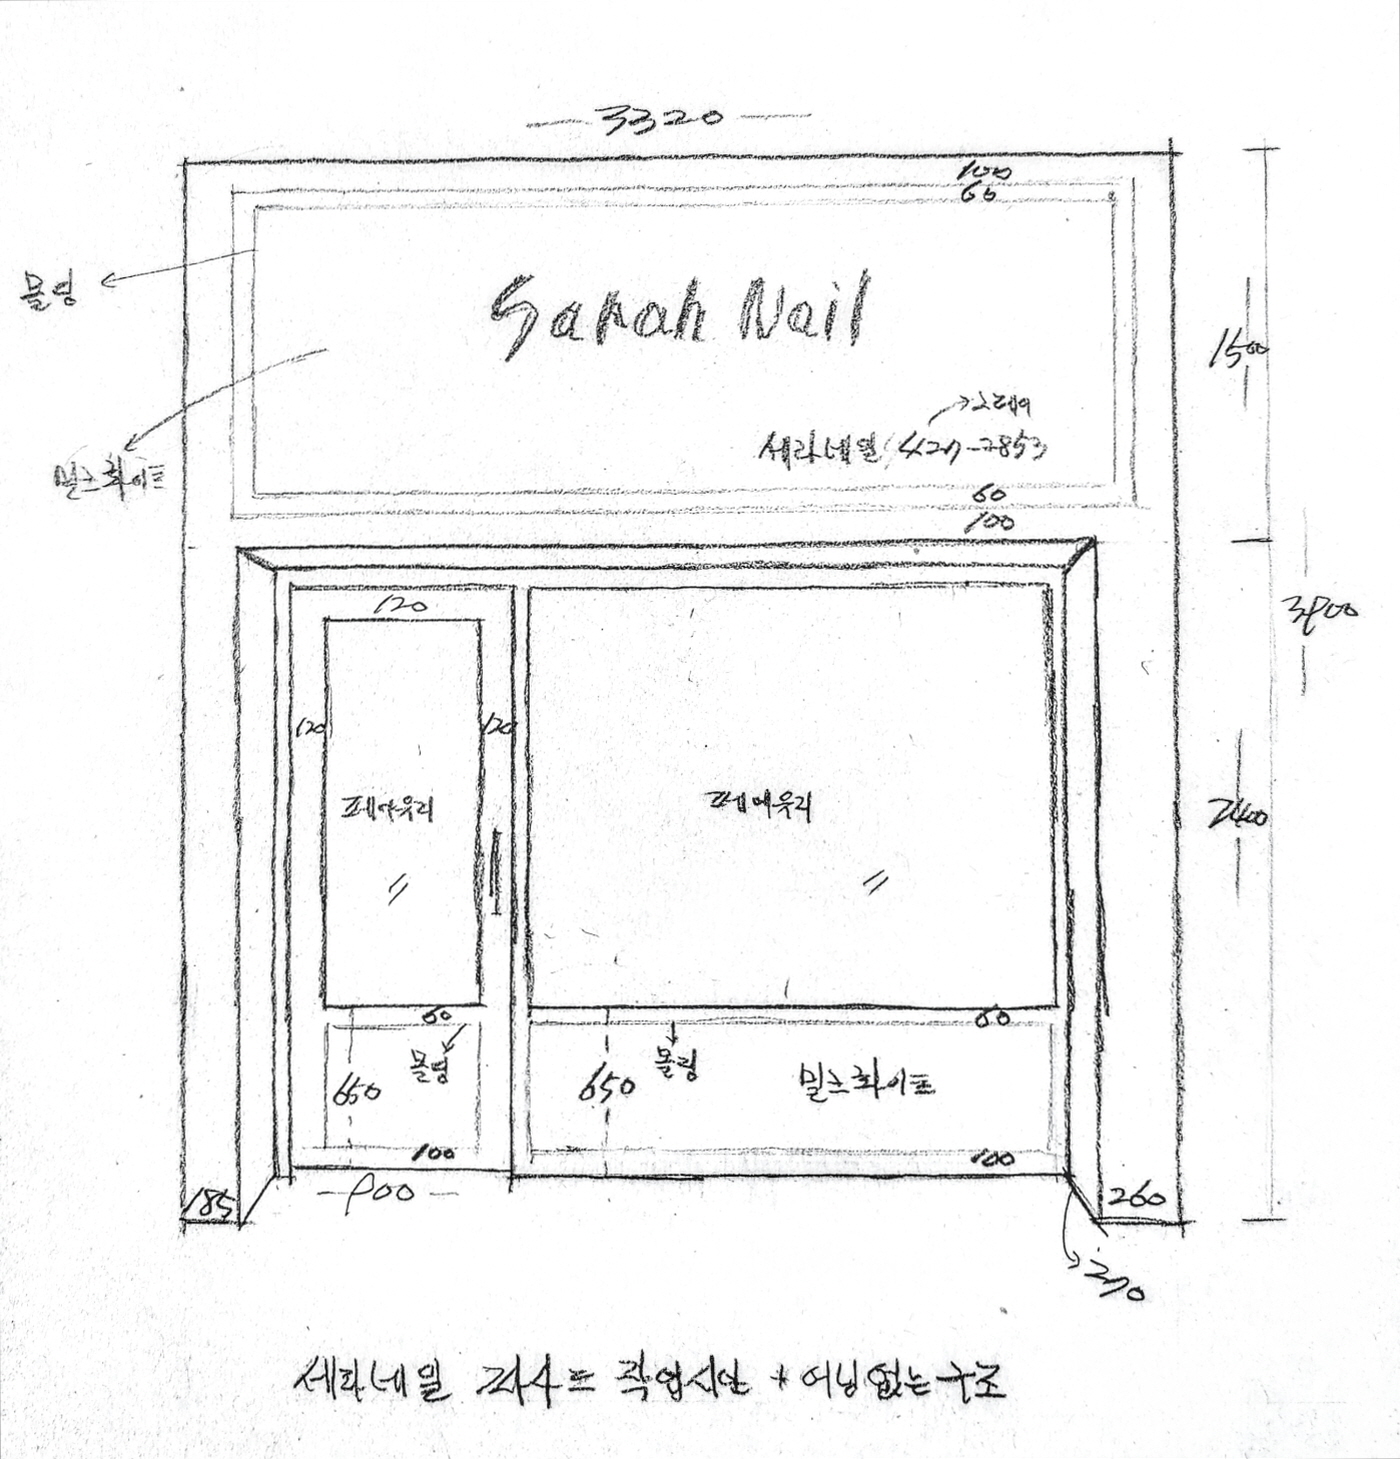 3320
100
60
몰딩
Sarah Nail
1500
그레이
세라네일 / 427-2853
밀크화이트
60
100
3900
120
120
120
페어유리
페어유리
2400
60
60
몰딩
몰딩
650
650
밀크화이트
100
100
900
185
260
270
세라네일 파사드 작업시안 * 어닝없는구조